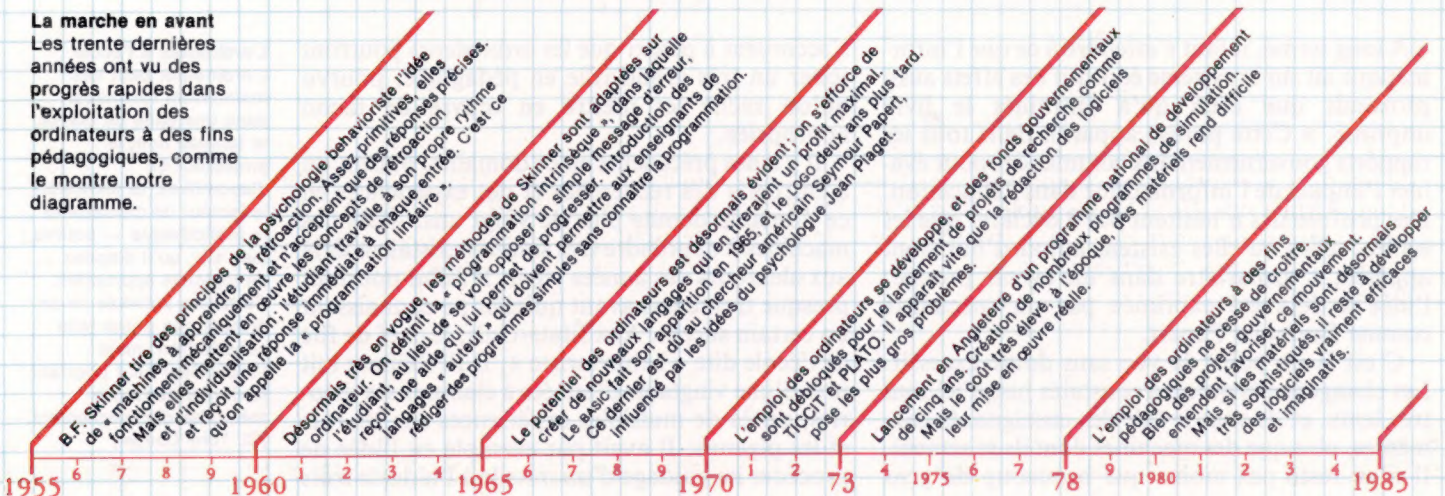 La marche en avant
Les trente dernières
années ont vu des
progrès rapides dans
l'exploitation des
ordinateurs à des fins
pédagogiques, comme
le montre notre
diagramme.
B.F. Skinner tire des principes de la psychologie behavioriste l'idée
de « machines à apprendre » à rétroaction. Assez primitives, elles
fonctionnent mécaniquement et n'acceptent que des réponses précises.
Mais elles mettent en œuvre les concepts de rétroaction
et d'individualisation : l'étudiant travaille à son propre rythme
et reçoit une réponse immédiate à chaque entrée. C'est ce
qu'on appelle la « programmation linéaire ».
Désormais très en vogue, les méthodes de Skinner sont adaptées sur
ordinateur. On définit la « programmation intrinsèque », dans laquelle
l'étudiant, au lieu de se voir opposer un simple message d'erreur,
reçoit une aide qui lui permet de progresser. Introduction des
langages « auteur » qui doivent permettre aux enseignants de
rédiger des programmes simples sans connaître la programmation.
Le potentiel des ordinateurs est désormais évident ; on s'efforce de
créer de nouveaux langages qui en tireraient un profit maximal.
Le BASIC fait son apparition en 1965, et le LOGO deux ans plus tard.
Ce dernier est dû au chercheur américain Seymour Papert,
influencé par les idées du psychologue Jean Piaget.
L'emploi des ordinateurs se développe, et des fonds gouvernementaux
sont débloqués pour le lancement de projets de recherche comme
TICCIT et PLATO. Il apparaît vite que la rédaction des logiciels
pose les plus gros problèmes.
Lancement en Angleterre d'un programme national de développement
de cinq ans. Création de nombreux programmes de simulation.
Mais le coût très élevé, à l'époque, des matériels rend difficile
leur mise en œuvre réelle.
L'emploi des ordinateurs à des fins
pédagogiques ne cesse de croître.
Bien des projets gouvernementaux
entendent favoriser ce mouvement.
Mais si les matériels sont désormais
très sophistiqués, il reste à développer
des logiciels vraiment efficaces
et imaginatifs.
1955 6 7 8 9 1960 1 2 3 4 1965 6 7 8 9 1970 1 2 73 4 1975 6 7 78 9 1980 1 2 3 4 1985